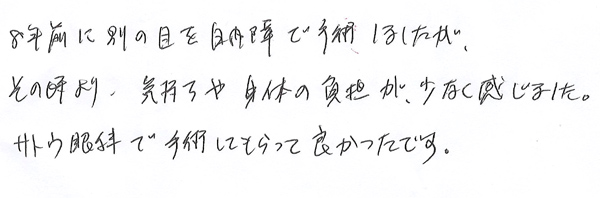 8年前に別の目を白内障で手術しましたが、
その時より、気持ちや身体の負担が、少なく感じました。
サトウ眼科で手術してもらって良かったです。